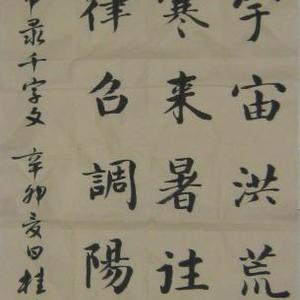 宇宙洪荒
寒来暑往
律召調陽
录千字文 辛卯夏日 桂